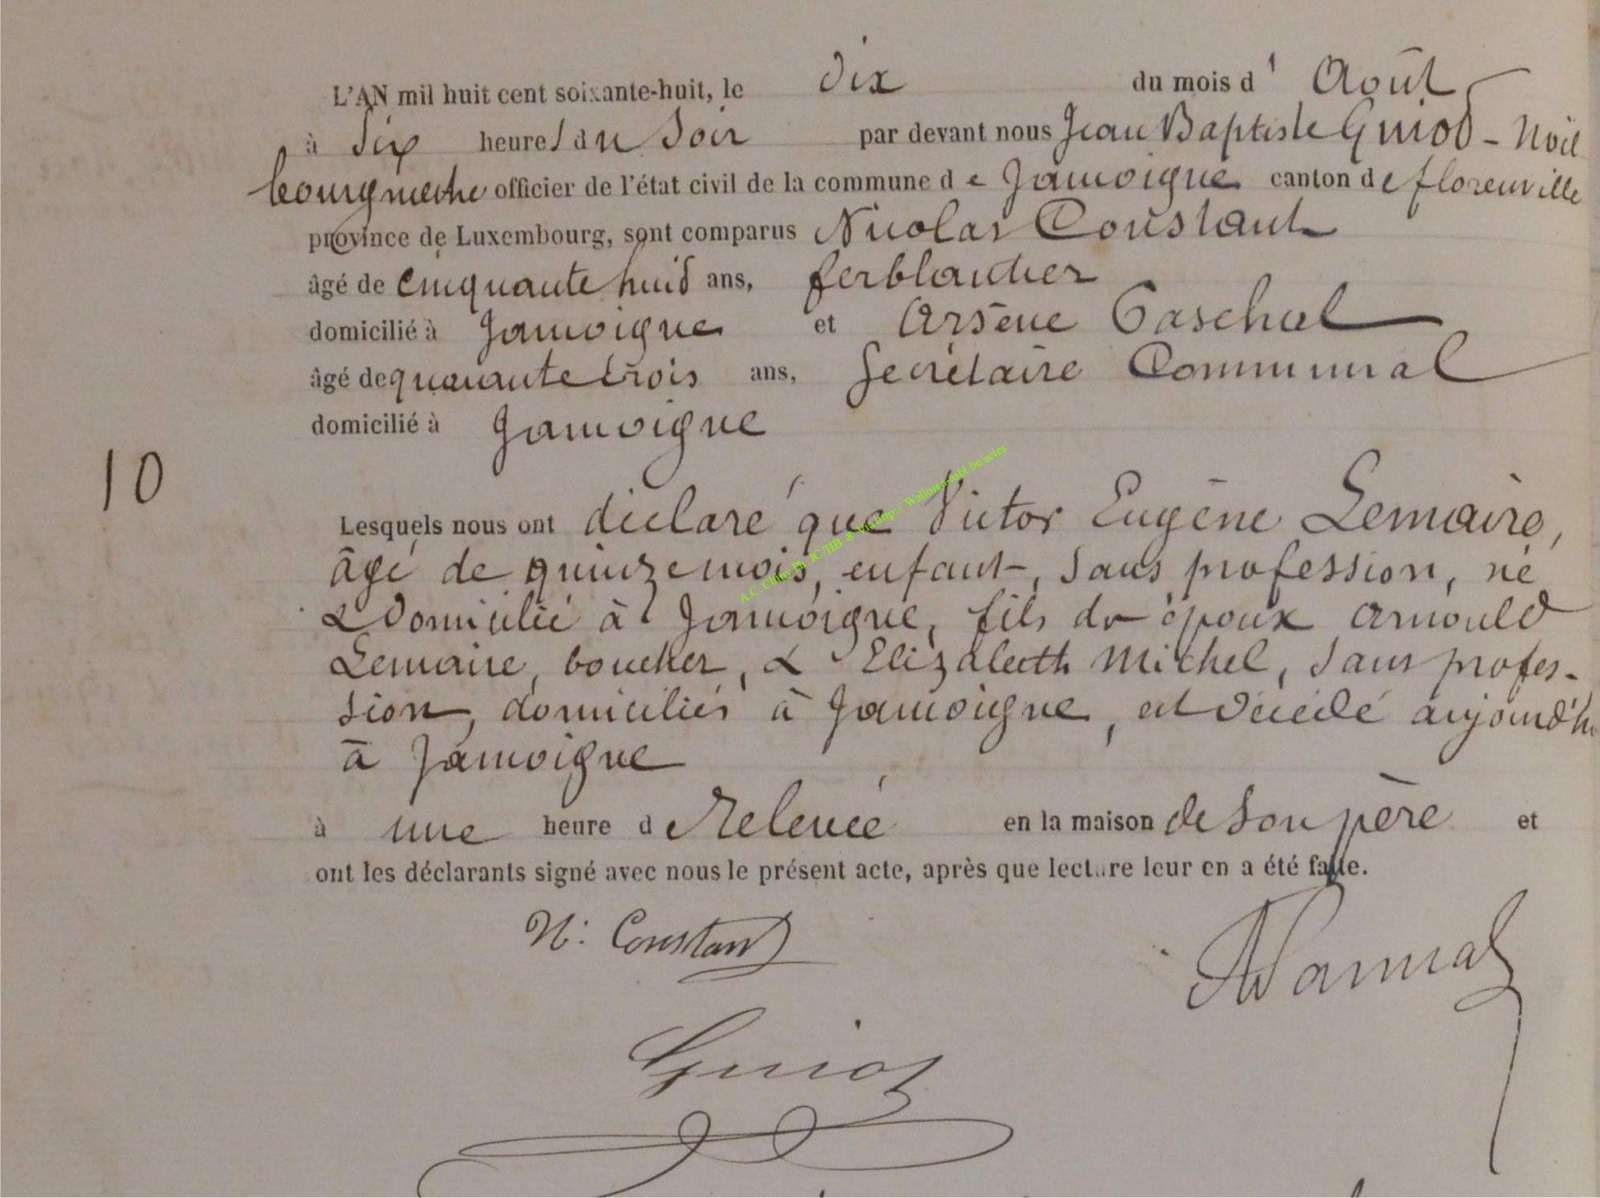 L'AN mil huit cent soixante-huit, le dix du mois d' Août
à six heures du soir par devant nous Jean Baptiste Guiod - Noël
bourgmestre officier de l'état civil de la commune de Jamoigne canton de florenville
province de Luxembourg, sont comparus Nicolas Constant
âgé de cinquante huid ans, ferblantier
domicilié à Jamoigne et Arsène
âgé de quarante trois ans, Secrétaire Communal
domicilié à Jamoigne
10
Lesquels nous ont déclaré que Victor Eugène Lemaire,
âgé de quinze mois, enfant, sans profession, né
& domicilié à Jamoigne, fils des époux Arnould
Lemaire, boucher, & Elizabeth Michel, sans profes-
sion, domiciliés à Jamoigne, est décédé aujourd'hu
à Jamoigne
à une heure de relevée en la maison de son père et
ont les déclarants signé avec nous le présent acte, après que lecture leur en a été faite.
N. Constant
Guiod